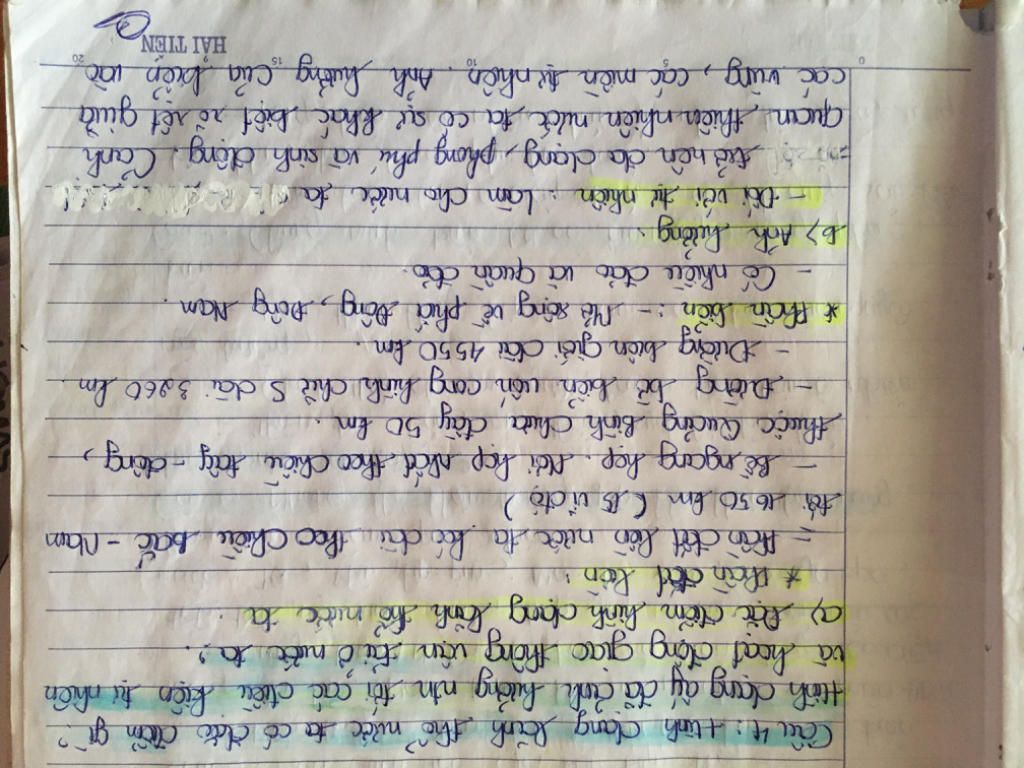 Câu 4: Hình dạng lãnh thổ nước ta có đặc điểm gì?
Hình dạng ấy đã ảnh hưởng ntn tới các điều kiện tự nhiên
và hoạt động giao thông vận tải ở nước ta?
a) Đặc điểm hình dạng lãnh thổ nước ta:
* Phần đất liền:
- Phần đất liền nước ta kéo dài theo chiều Bắc - Nam
tới 1650 km (15 vĩ độ)
- Bề ngang hẹp. Nơi hẹp nhất theo chiều tây - đông,
thuộc Quảng Bình chưa đầy 50 km.
- Đường bờ biển uốn cong hình chữ S dài 3260 km.
- Đường biên giới dài 4550 km.
* Phần biển: - Mở rộng về phía Đông, Đông Nam.
- Có nhiều đảo và quần đảo.
b) Ảnh hưởng.
- Đối với tự nhiên: Làm cho nước ta
trở nên đa dạng, phong phú và sinh động. Cảnh
quan thiên nhiên nước ta có sự khác biệt rõ rệt giữa
các vùng, các miền tự nhiên. Ảnh hưởng của biển vào
0 5 10 15 20
HẢI TIẾN